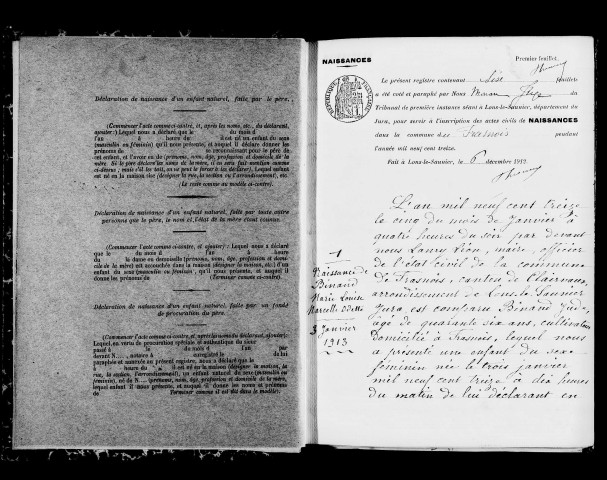 Déclaration de naissance d'un enfant naturel, faite par le père.
(Commencer l'acte comme ci-contre, et, après les noms, etc., du déclarant,
ajouter:) Lequel nous a déclaré que le du mois d
l'an à heure du il est né un enfant du sexe
(masculin ou féminin) qu'il nous présente, et auquel il déclare donner les
prénoms de se reconnaissant pour le père de
cet enfant, et l'avoir eu de (prénoms, nom, âge, profession et domicile de la
mère). Si le père déclare
est né en sa maison (désigner la rue, la section ou l'arrondissement), etc.
(Le reste comme au modèle ci-contre).
Déclaration de naissance d'un enfant naturel, faite par toute autre
personne que le père, le nom et l'état de la mère étant connus.
(Commencer l'acte comme ci-contre, et ajouter:) Lequel nous a déclaré
que le du mois d l'an heure
du la dame ou demoiselle (prénoms, nom, âge, profession et domi-
cile de la mère) est accouchée dans la maison (désigner la maison, etc.) d'un
enfant du sexe (masculin ou féminin), qu'il nous présente, et auquel il donne
les prénoms de (Terminer comme ci-contre).
Déclaration de naissance d'un enfant naturel, faite par un fondé
de procuration du père.
(Commencer l'acte comme ci-contre, et après les noms du déclarant, ajouter:)
Lequel, en vertu de procuration spéciale et authentique du sieur
passé à le du mois d l'an par
devant N..., notaire à enregistrée le de lui
paraphée et annexée au présent registre, nous a déclaré que le
à heure du il est né en sa maison (désigner la maison, la
rue, la section, l'arrondissement), un enfant naturel du sexe (masculin ou
féminin), né de N... (prénoms, nom, âge, profession et domicile de la mère,
lequel enfant il nous présente et auquel il donne les prénoms
de Terminer comme il est dit dans le modèle).
NAISSANCES
Premier feuillet.
Le présent registre contenant seize feuillets
a été coté et paraphé par Nous du
Tribunal de première instance séant à Lons-le-Saunier, département du
Jura, pour servir à l'inscription des actes civils de NAISSANCES
dans la commune de Frasnois pendant
l'année mil neuf cent treize.
Fait à Lons-le-Saunier, le 6 décembre 1912.
RÉPUBLIQUE FRANÇAISE
1
Naissance de
Binand
Marie Louise
Marcelle Odette
3 janvier
1913
L'an mil neuf cent treize
le cinq du mois de janvier à
quatre heures du soir par devant
nous Lamy Léon, maire, officier
de l'état civil de la commune
de Frasnois, canton de Clairvaux,
arrondissement de Lons-le-Saunier
Jura est comparu Binand
âgé de quarante six ans, cultivateur
domicilié à Frasnois, lequel nous
a présenté une enfant du sexe
féminin née le trois janvier
mil neuf cent treize à dix heures
du matin de lui déclarant en